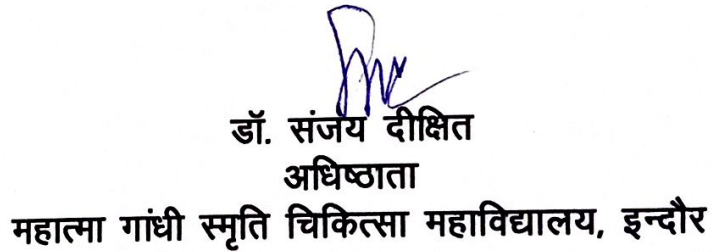 डॉ. संजय दीक्षित
अधिष्ठाता
महात्मा गांधी स्मृति चिकित्सा महाविद्यालय, इन्दौर